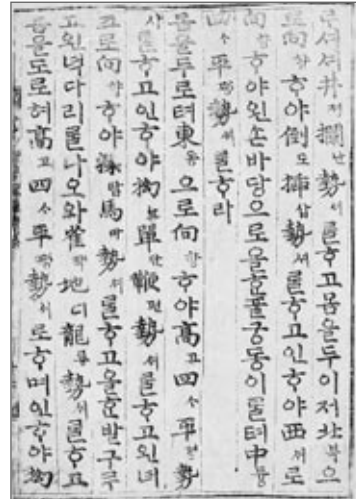 셔셔井졍攔난勢셔ᄅᆞᆯᄒᆞ고몸을두이저北븍으
로向향ᄒᆞ야倒도揷삽勢셔ᄅᆞᆯᄒᆞ고인ᄒᆞ야西셔로
向향ᄒᆞ야왼손바당으로올ᄒᆞᆫ풀궁동이ᄅᆞᆯ텨中듕
四ᄉᆞ平평勢셔ᄅᆞᆯᄒᆞ라
몸을두로텨東동으로向향ᄒᆞ야高고四ᄉᆞ平평勢
셔ᄅᆞᆯᄒᆞ고인ᄒᆞ야拗요單단鞭편勢셔ᄅᆞᆯᄒᆞ고왼녀
크로向향ᄒᆞ야探탐馬마勢셔ᄅᆞᆯᄒᆞ고올ᄒᆞᆫ발구루
고왼녁다리ᄅᆞᆯ나오와雀쟉地디龍룡勢셔ᄅᆞᆯᄒᆞ고
몸을도로혀高고四ᄉᆞ平평勢셔로ᄒᆞ며인ᄒᆞ야拗